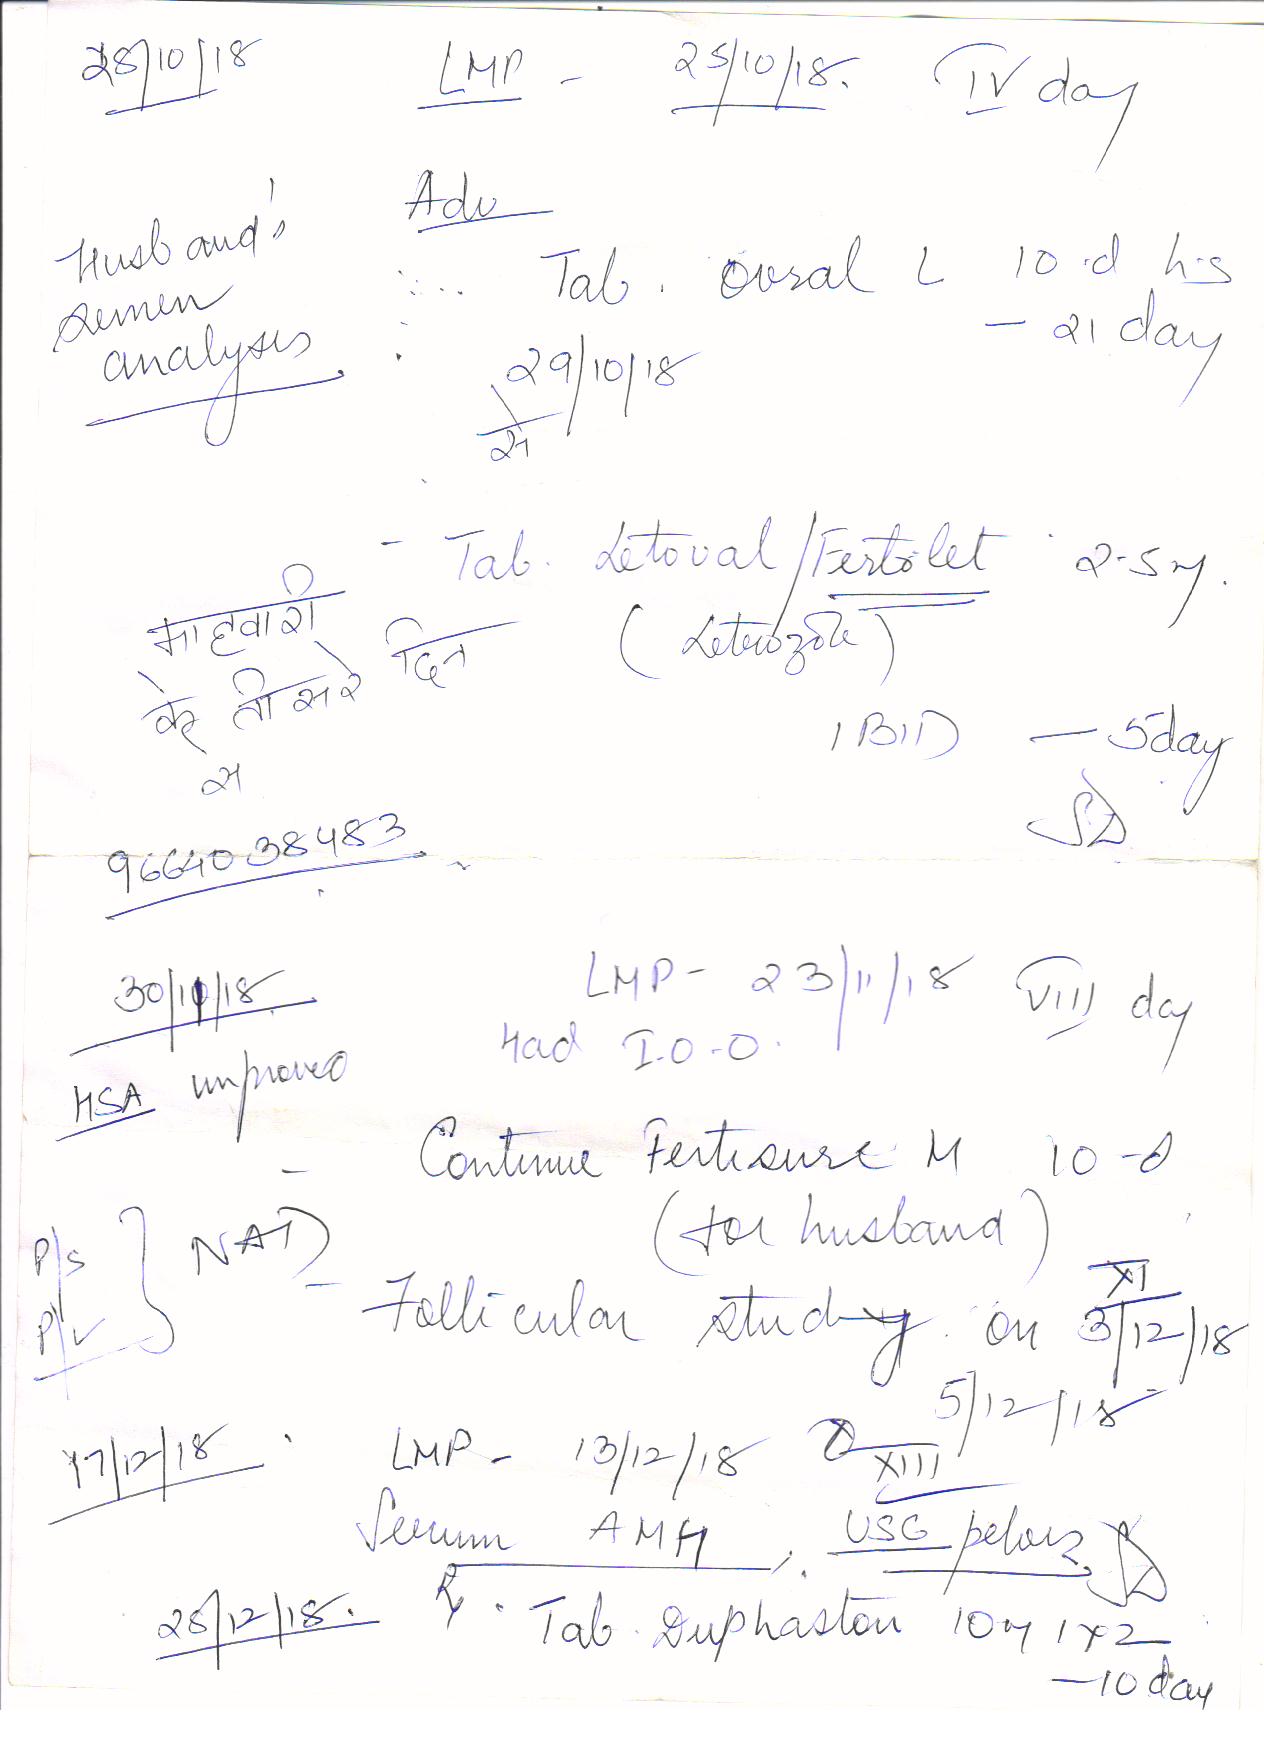 28/10/18 LMP - 25/10/18. IV day
Adv
Husband's
semen
analysis
Tab. Ovral L 10.d h.s
- 21 day
29/10/18
से
- Tab. Letoval/Fertolet 2.5 mg.
(Letrozole)
माहवारी
के तीसरे दिन
से
1 BID - 5day
9664038483
30/11/18 LMP - 23/11/18 VIII day
Had I.O.O.
HSA improved
- Continue Fertisure M 10-d
(for husband)
P/s
P/v
} NAD
- Follicular study on 3/12/18
XI
5/12/18
XIII
17/12/18 LMP - 13/12/18
Serum AMH, USG pelvis
28/12/18. R. Tab. Duphaston 10mg 1x2
- 10 day